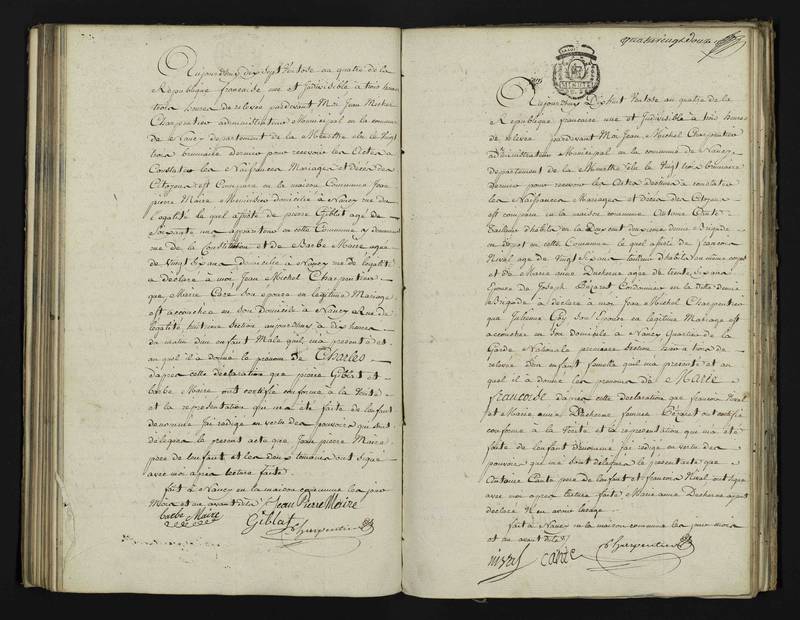 Aujourdhuy dix Sept Ventose an quatre de la
République française une et Indivisible à trois heures
trois heures de relevée pardevant Moi Jean Michel
Charpentier administrateur Municipal en la commune
de Nancy departement de la Meurthe élu le Vingt
trois brumaire dernier pour recevoir les Actes à
Constater les Naissances Mariages et Décès des
Citoyens est Comparu en la maison Commune Jean
pierre Maire Menuisier domicilié à Nancy rue de
l'égalité le quel assisté de pierre Giblat agé de
Soixante ans appariteur en cette Commune y demeurant
rue de la Constitution et de Barbe Maire agée
de Vingt Six ans domiciliée à Nancy rue de légalité
a déclaré à moi Jean Michel Charpentier
que Marie Caré Son épouse en légitime Mariage
est accouchée en Son domicile à Nancy Rue de
légalité huitieme Section aujourdhuy à dix heures
du matin d'un enfant Male qu'il m'a présenté et
au quel il à donné le prénom de Charles
dapres cette déclaration que pierre Giblat et
barbe Maire ont certifié conforme à la Vérité
et la représentation qui m'a été faite de lenfant
denommé jai rédigé en vertu des pouvoirs qui sont
délégués le présent acte que Jean pierre Maire
père de lenfant et les deux temoins ont signé
avec moi après lecture faite.
fait à Nancy en la maison commune les jour
Mois et an avant dits Jean Pierre Maire
barbe Maire
Giblat
Charpentier
quatrevingt douze
Aujourdhuy Dixhuit Ventose an quatre de la
République française une et Indivisible à trois heures
de relevée pardevant Moi Jean Michel Charpentier
administrateur Municipal en la commune de Nancy
departement de la Meurthe élu le Vingt trois brumaire
dernier pour recevoir les Actes destinés à constater
les Naissances Mariages et Décès des Citoyens
est comparu en la maison commune Antoine
Tailleur d'habits en la demie Brigade
en Depot en cette Commune le quel assisté de francois
Nival agé de Vingt Six ans tailleur d'habits au même corps
et de Marie anne Duchesne agée de trente Six ans
Epouse de Joseph Bézaret Cordonnier en la dite demie
Brigade à déclaré à moi Jean Michel Charpentier
que Julienne Son Epouse en légitime Mariage est
accouchée en Son domicile à Nancy Quartier de la
Garde Nationale premiere Section à trois de
relevée d'un enfant femelle quil m'a présenté et au
quel il à donné les prenoms de Marie
françoise dapres cette déclaration que francois Nival
et Marie anne Duchesne femme Bézaret ont certifié
conforme à la Vérité et la représentation qui m'a été
faite de lenfant dénommé jai rédigé en vertu des
pouvoirs qui me sont délégués le présent acte que
Antoine père de lenfant et francois Nival ont signé
avec moi après lecture faite Marie anne Duchesne ayant
déclaré N'en avoir lusage.
fait à Nancy en la maison commune les jour mois
et an avant dits
nival
Charpentier